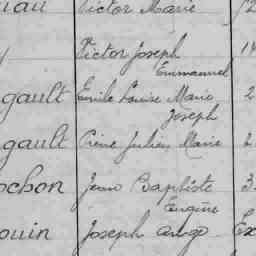 Victor Marie
Victor Joseph
Emmanuel
gault Emile Louise Marie 2
Joseph
gault Pierre Julien Marie 2
ochon Jean Baptiste 3
Eugène
ouin Joseph Ange Ex